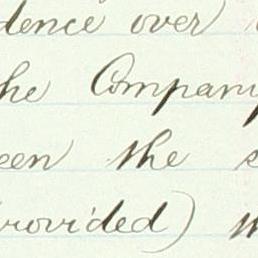 dence over
he Compan
een the s
rovided)